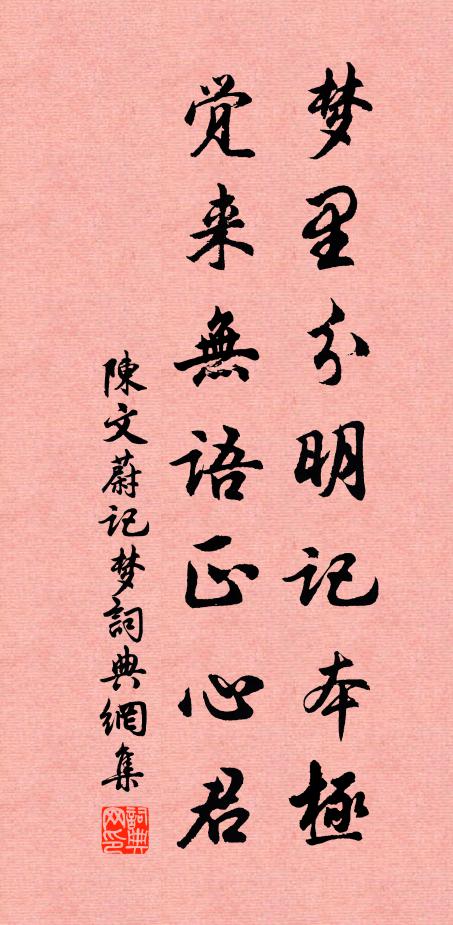 梦里分明记本極
觉来無語正心君
陳文蔚记梦詞典網集
詞典网印